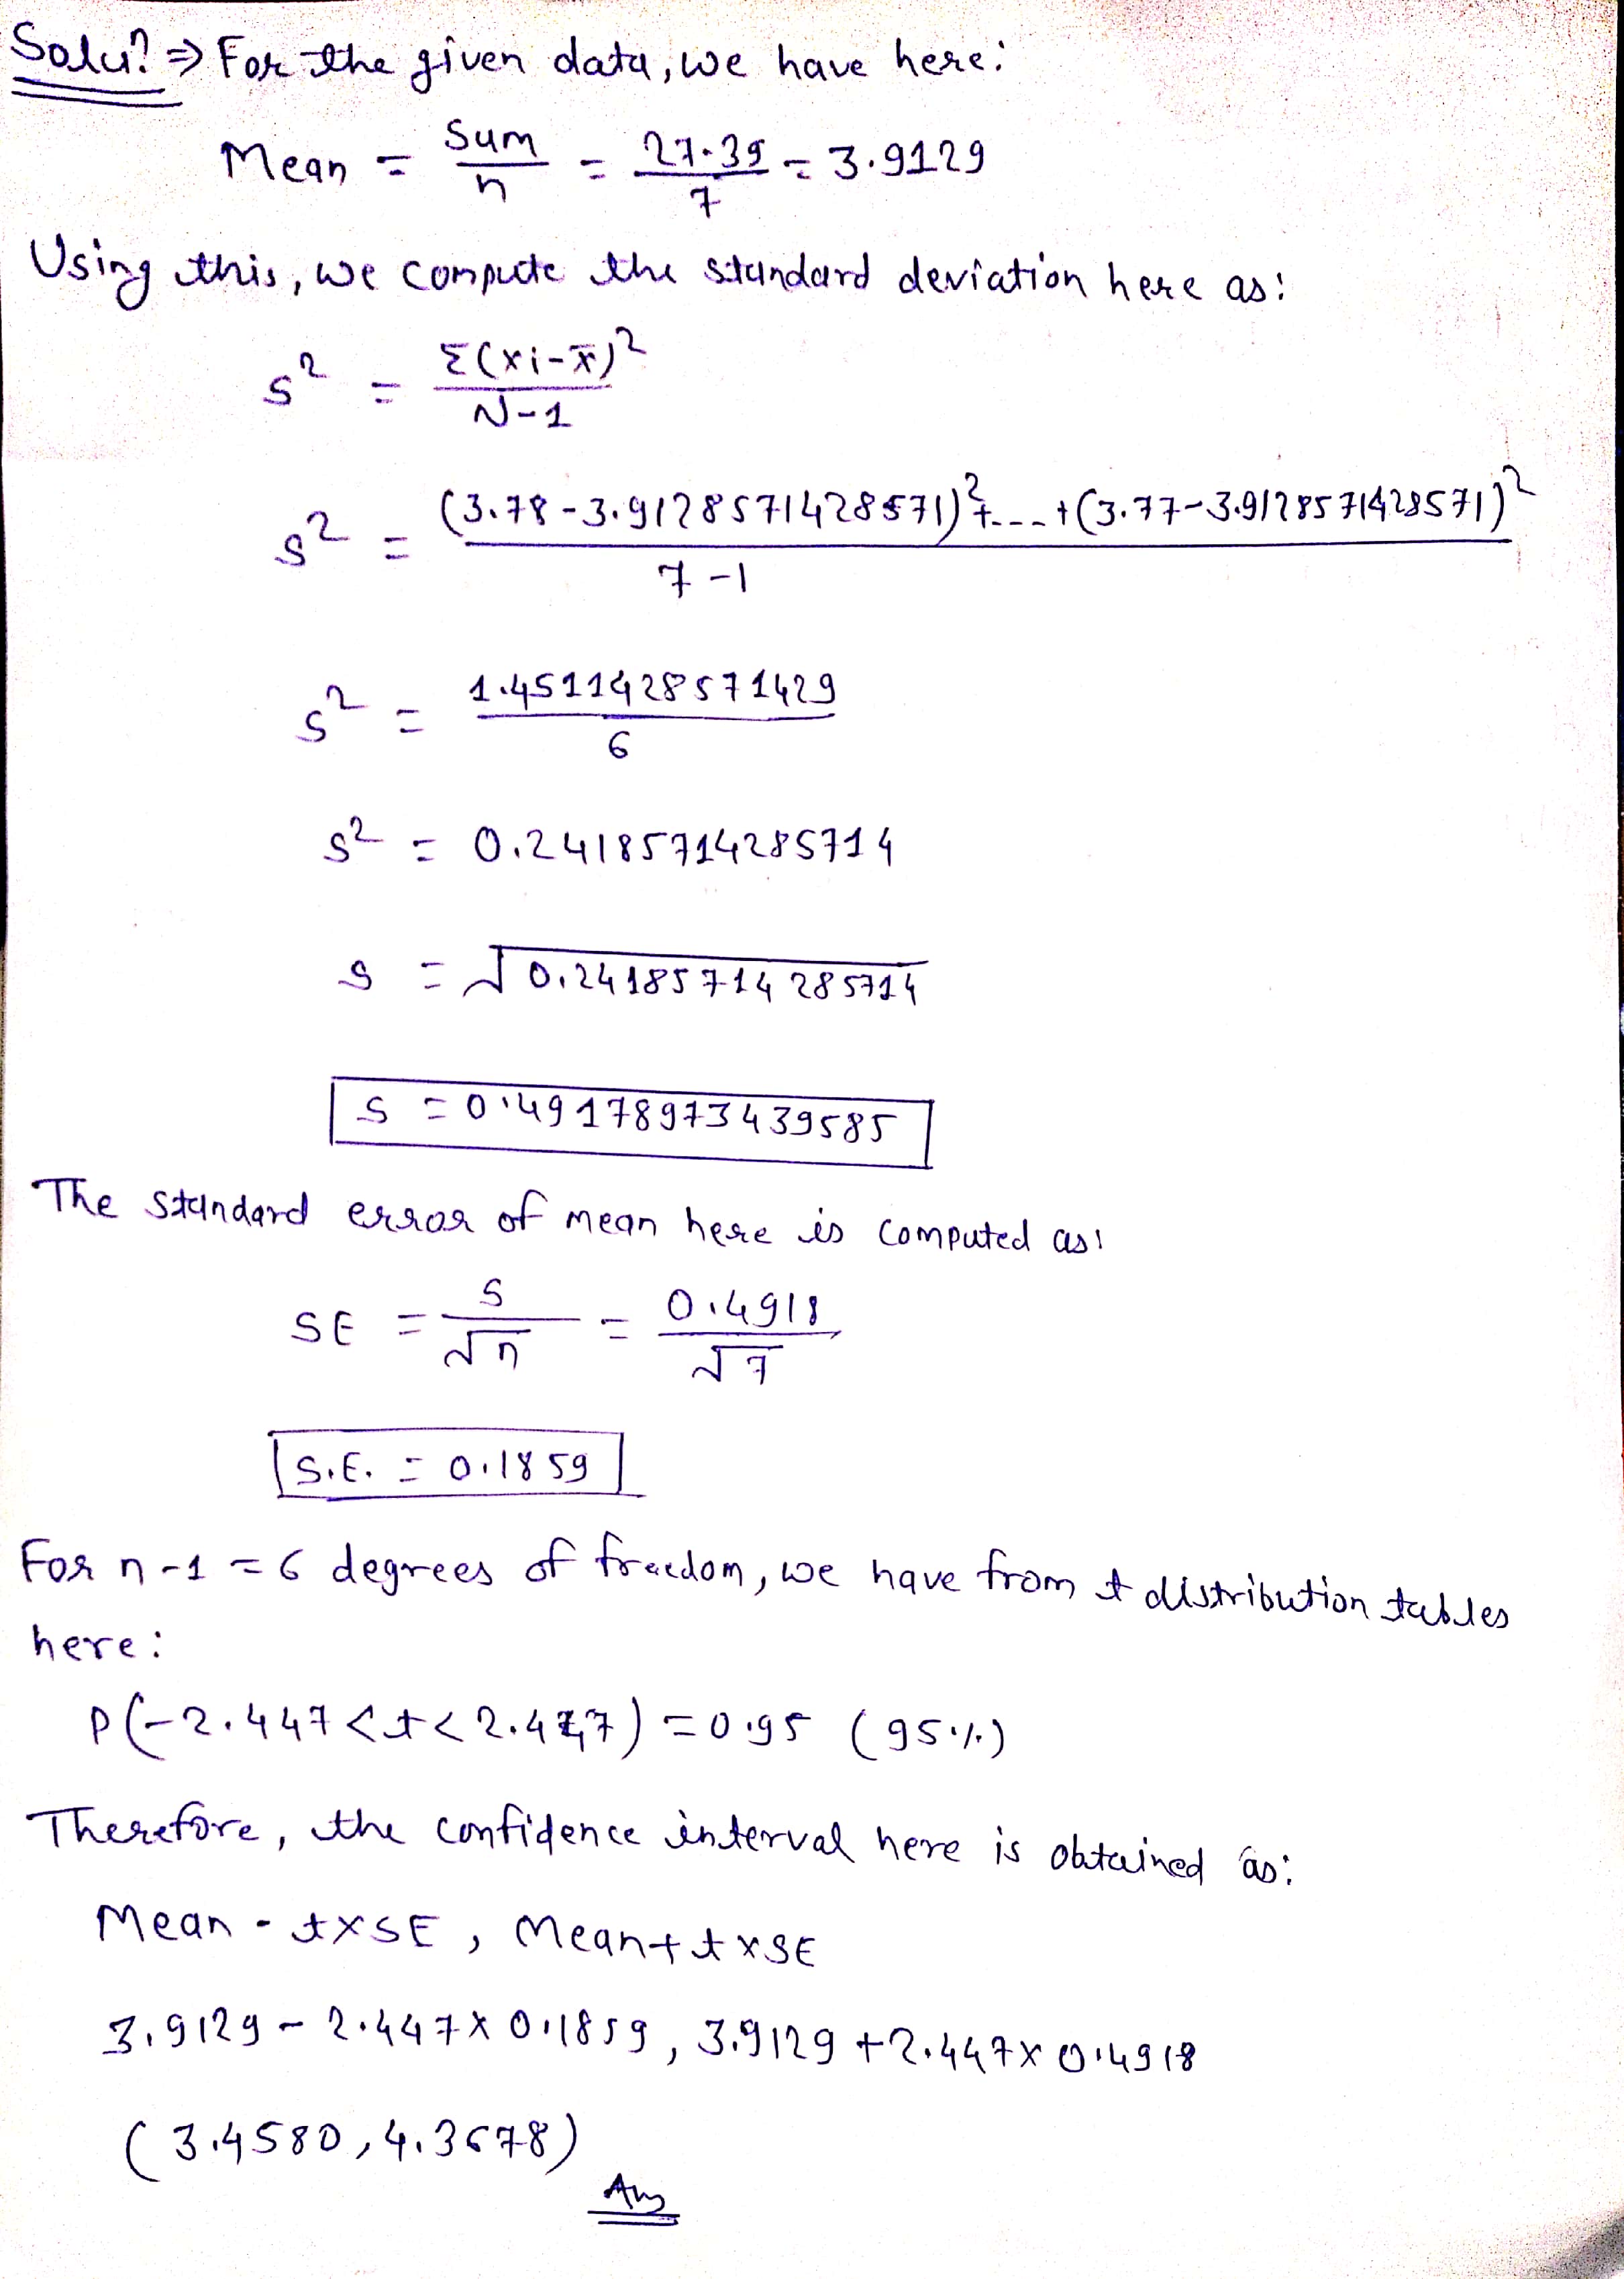 Solun ⇒ For the given data, we have here:
Mean = Sum/n = 27.39/7 = 3.9129
Using this, we compute the standard deviation here as:
s² = Σ(xi-x̄)²/N-1
s² = (3.78-3.9128571428571)²+---+(3.77-3.9128571428571)²/7-1
s² = 1.4511428571429/6
s² = 0.24185714285714
s = √0.24185714285714
s = 0.49178973439585
The standard error of mean here is computed as:
SE = s/√n = 0.4918/√7
S.E. = 0.1859
For n-1 = 6 degrees of freedom, we have from t distribution tables
here:
P(-2.447<t<2.447) = 0.95 (95%)
Therefore, the confidence interval here is obtained as:
Mean - t×SE, Mean + t×SE
3.9129 - 2.447×0.1859, 3.9129 + 2.447×0.4918
(3.4580, 4.3678)
Ans